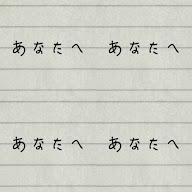 あなたへ あなたへ
あなたへ あなたへ